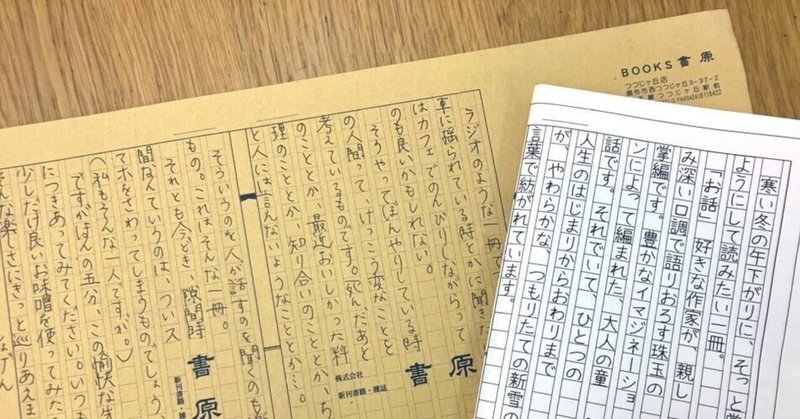 BOOKS 書原
つつじヶ丘店
調布市西つつじヶ丘3-37-2
ラジオのような一冊で
車に揺られている時とかに聞きな
はカフェでのんびりしながらって
のも良いかもしれない。
そうやってぼんやりしている時
の人間って、けっこう変なことを
考えているものです。死んだあと
のこととか、最近おいしかった料
理のこととか、知り合いのこととか、ち
と人には言えないようなこととか…。
株式会社 書原
新刊書籍・雑誌
そういうのを人が話すのを聞くのも
もの。これはそんな一冊。
それとも今どき、隙間時
間なんていうのは、ついス
てホをさわってしまうものでしょう、
(私もそんな一人ですが。)
ですがほんの五分、この愉快な生
につきあってみてください。いつ
少しだけ良いお味噌を使ってみた
そんな楽しさにきっと巡りあえま
しょげん
書原
新刊書籍・雑誌
寒い冬の午下がりに、そっと
ようにして読みたい一冊。
「お話」好きな作家が、親し
み深い口調で語りおろす珠玉の
掌編です。豊かなイマジネーショ
ンによって編まれた、大人の童
話です。それでいて、ひとつの
人生のはじまりからおわりまで
が、やわらかな、つもりたての新雪の
言葉で紡がれています。